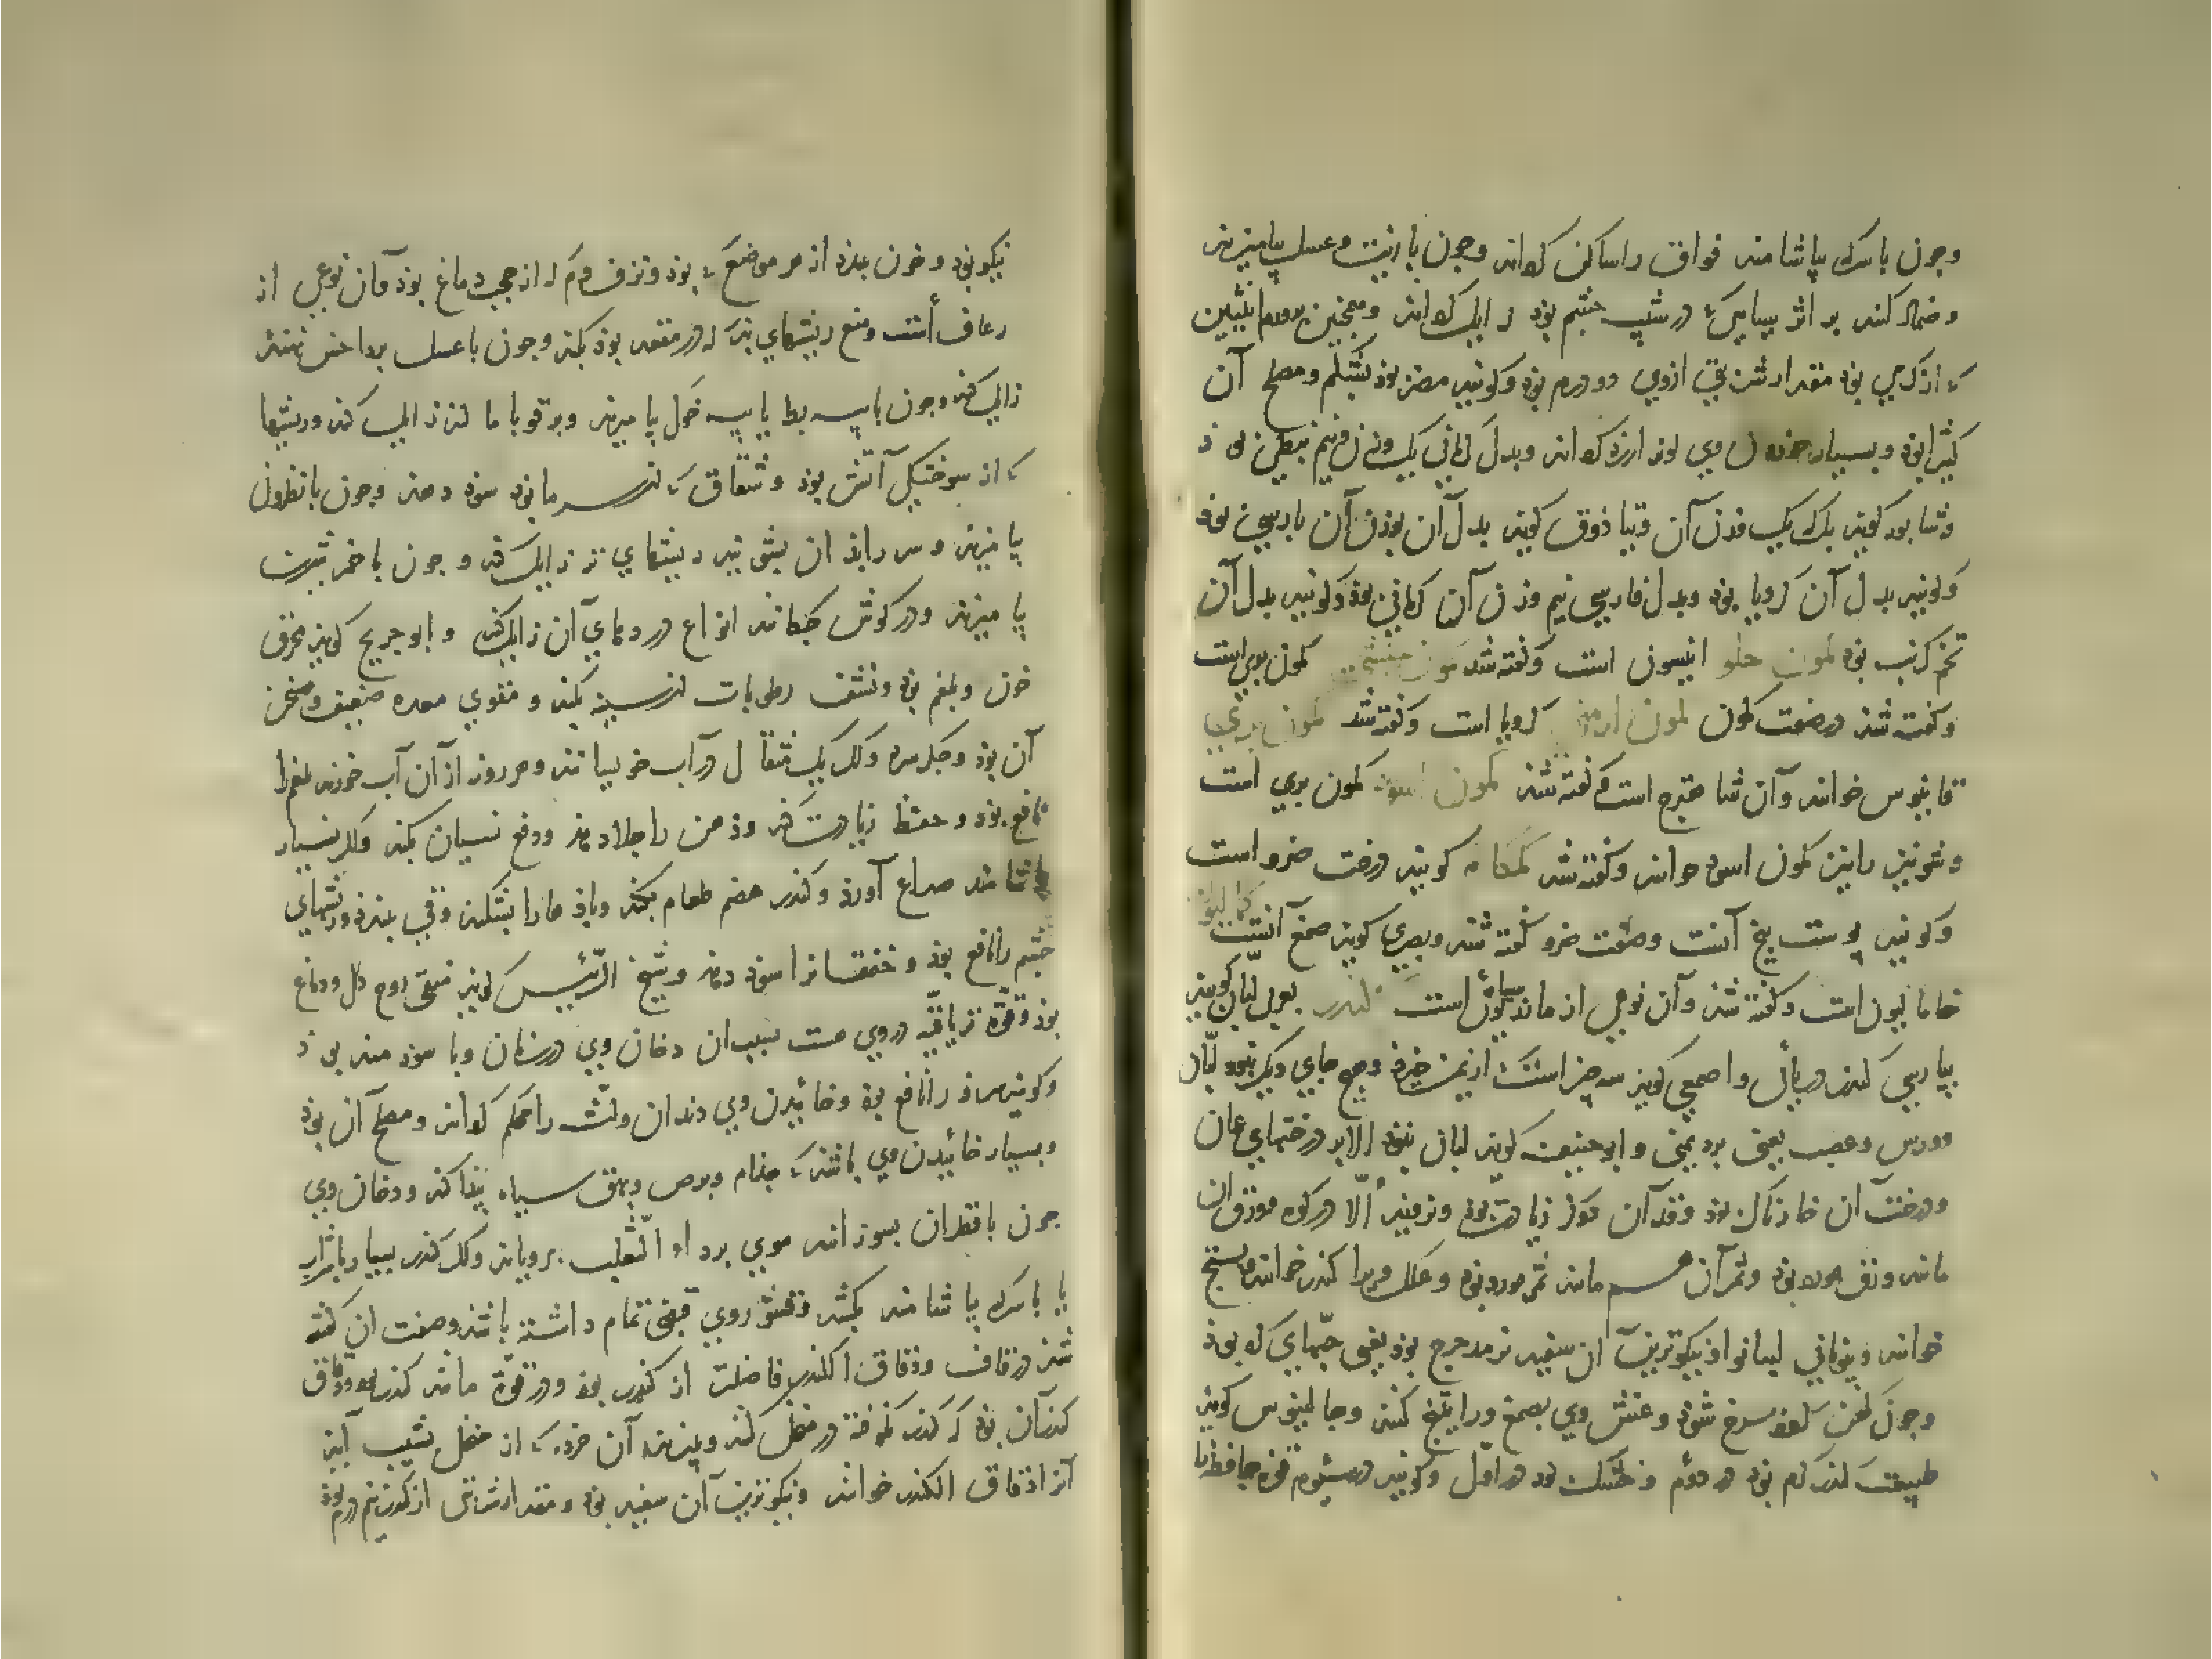 وجون با سرکه بیاشامند فواق را ساکن کرداند وجون با زیت وعسل بیامیزند
وضماد کنند بر اثر سیاهی که در شیب چشم بود زایل کرداند وهمچنین ورم انثیین
که از کرمی بود مقدار شربتی ازوی دو درم بود وکویند مضر بود بشش ومصلح آن
کثیرا بود وبسیار خوردن وی لون را زرد کرداند وبدل کرمانی یک وزن ونیم نبطی بود
وشابور کوید بدل یک وزن آن وتیاذوق کوید بدل آن بوزن آن پارسی بود
وکویند بدل آن کرویا بود وبدل فارسی نیم وزن آن کرمانی بود وکویند بدل آن
تخم کرنب بود کمون حلو انیسون است وکفته شد کمون حبشی کمون بری است
وکفته شد در صفت کمون کمون ارمنی کرویا است وکفته شد کمون بری
قاینوس خوانند وآن شاهترج است وکفته شد کمون اسود کمون بری است
وشونیز را نیز کمون اسود خوانند وکفته شد کمکام کویند درخت ضرو است
وکویند پوست بیخ آنست وصفت ضرو کفته شد وبصری کوید صمغ آنست کمالیون
خامالیون است وکفته شد وآن نوعی از مازریون سیاه است کندر بعربی لبان کویند
بپارسی کندر دریائی واصمعی کوید سه چیز است که از یمن خیزد وهیچ جای دیکر نبود لبان
وورس وعصب یعنی برد یمنی وابو حنیفه کوید لبان نبود الا بر درختهای عمان
ودرخت آن خارناک بود وقد آن دو کز زیادت نبود ونروید الا در کوه وورق آن
مانند ورق مورد بود وثمر آن هم مانند ثمر مورد بود وعلک ویرا کندر خوانند وبستج
خوانند وبیونانی لیبانو از نیکوترین آن سفید نر مدحرج بود یعنی حبهای کرد بود
وجون کهن شود سرخ شود وغش وی بصمغ وراتینج کنند وجالینوس کوید
طبیعت کندر کرم بود در دوم وخشک بود در اول وکویند در سیوم قوة حافظه را
نیکو بود وخون ببندد از هر موضع که بود ونزف دم که از حجب دماغ بود وآن نوعی از
رعاف است ومنع ریشهای بد که در مقعد بود بکند وجون با عسل بر داحس نهند
زایل کند وجون با پیه بط یا پیه خوک بیامیزند وبر قوبا مالند زایل کند وریشها
که از سوختکی آتش بود وشقاق که از سرما بود سود دهد وجون با نطرون
بیامیزند وسر را بدان بشویند ریشهای تر زایل کند وجون با خمر شیرین
بیامیزند ودر کوش چکانند انواع دردهای آن زایل کند وابو جریج کوید محرق
خون وبلغم بود ونشف رطوبات از سینه بکند ومقوی معده ضعیف ومسخن
آن بود وجکر سرد وکر یک مثقال در آب خویسانند وهر روز از آن آب خورند بلغم را
نافع بود وحفظ زیادت کند وذهن را جلا دهد ودفع نسیان بکند وکر بسیار
بیاشامند صداع آورد وکندر هضم طعام بکند وبادها را بشکند وقی ببندد وریشهای
چشم را نافع بود وخفقان را سود دهد وشیخ الرئیس کوید مقوی روح دل ودماغ
بود وقوة تریاقیه در وی هست بسبب آن دخان وی در زمان وبا سودمند بود
وکویند سرفه را نافع بود وخائیدن وی دندان ولثه را محکم کرداند ومصلح آن بود
وبسیار خائیدن وی باشد که جذام وبرص وبهق سیاه پیدا کند ودخان وی
جون با قطران بسوزانند موی بر داء الثعلب برویاند وکر کندر بسیار با شراب
یا با سرکه بیاشامند بکشد وقشور وی قبضی تمام داشته باشد وصفت آن کفته
شد در قاف ودقاق الکندر فاضلتر از کندر بود ودر قوة مانند کندر بود ودقاق
کندر آن بود که کندر کوفته در منخل کنند وبیزند آن خرده که از منخل بشیب آید
آنرا دقاق الکندر خوانند ونیکوترین آن سفید بود ومقدار شربتی از کندر نیم درم بود